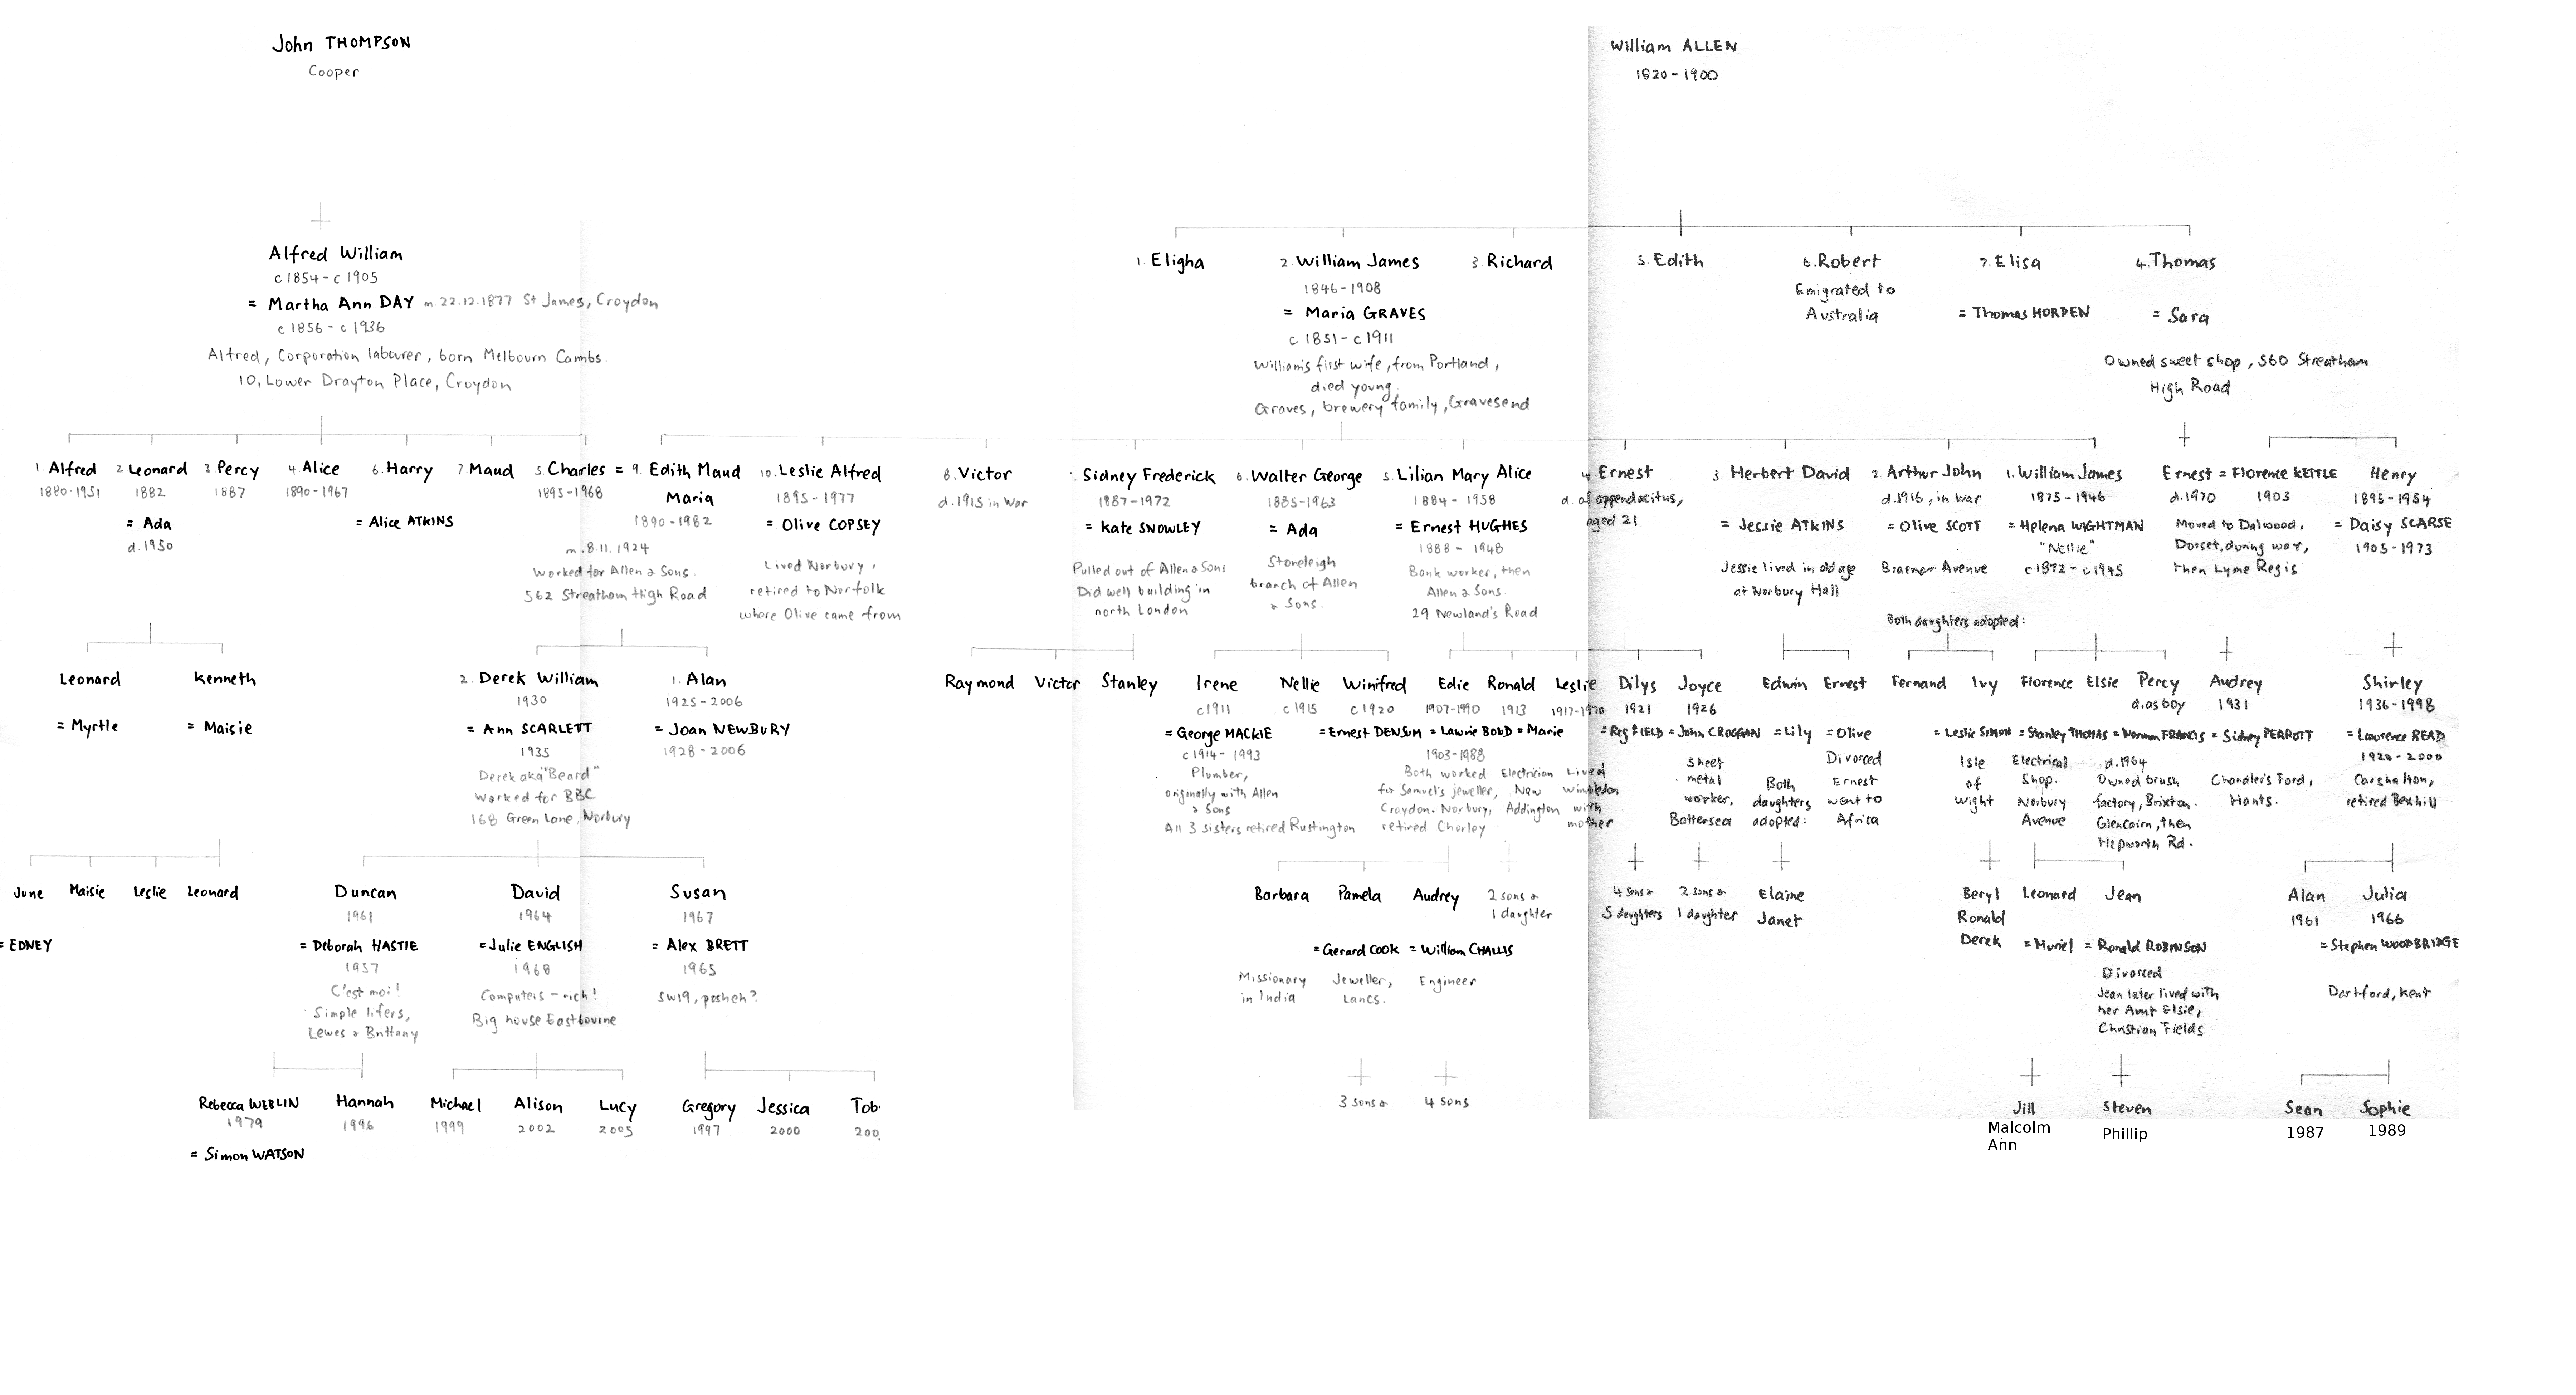 John THOMPSON
Cooper
William ALLEN
1820 - 1900
Alfred William
c 1854 - c 1905
= Martha Ann DAY m. 22.12.1877 St James, Croydon
c 1856 - c 1936
Alfred, Corporation labourer, born Melbourn Cambs.
10, Lower Drayton Place, Croydon
1. Eligha
2. William James
1846 - 1908
= Maria GRAVES
c 1851 - c 1911
William's first wife, from Portland,
died young.
Graves, brewery family, Gravesend
3 Richard
5. Edith
6. Robert
Emigrated to
Australia
7. Elisa
= Thomas HORDEN
4. Thomas
= Sara
Owned sweet shop, 560 Streatham
High Road
1. Alfred
1880-1951
2 Leonard
1882
= Ada
d. 1950
3 Percy
1887
4 Alice
1890-1967
6. Harry
= Alice ATKINS
7 Maud
5. Charles =
1895-1968
9. Edith Maud
Maria
1890-1982
m. 8.11.1924
Worked for Allen & Sons.
562 Streatham High Road
10. Leslie Alfred
1895-1977
= Olive COPSEY
Lived Norbury,
retired to Norfolk
where Olive came from
8. Victor
d. 1915 in War
Sidney Frederick
1887-1972
= Kate SNOWLEY
Pulled out of Allen & Sons
Did well building in
north London
6. Walter George
1885-1963
= Ada
Stoneleigh
branch of Allen
& Sons.
5. Lilian Mary Alice
1884 - 1958
= Ernest HUGHES
1888 - 1948
Bank worker, then
Allen & Sons
29 Newland's Road
4. Ernest
d. of appendacitus,
aged 21
3. Herbert David
= Jessie ATKINS
Jessie lived in old age
at Norbury Hall
2. Arthur John
d. 1916, in War
= Olive SCOTT
Braemar Avenue
1. William James
1875-1946
= Helena WIGHTMAN
"Nellie"
c1872 - c1945
Ernest = Florence KETTLE
d. 1970 1903
Moved to Dalwood,
Dorset, during war,
then Lyme Regis
Henry
1895-1954
= Daisy SCARSE
1905-1973
Both daughters adopted:
Leonard
= Myrtle
Kenneth
= Maisie
2. Derek William
1930
= Ann SCARLETT
1935
Derek aka "Beard"
Worked for BBC
168 Green Lane, Norbury
1. Alan
1925-2006
= Joan NEWBURY
1928-2006
Raymond
Victor
Stanley
Irene
c1911
= George MACKIE
c1914 - 1993
Plumber,
originally with Allen
& Sons
All 3 sisters retired Rustington
Nellie
c1915
Winifred
c1920
= Ernest DENSUM
Edie
1907-1990
= Lawrie BOUD
1903-1988
Both worked
for Samuel's jeweller,
Croydon. Norbury,
retired Chorley
Ronald
1913
Electrician
New
Addington
Leslie
1917-1970
= Marie
Lived
Wimbledon
with
mother
Dilys
1921
= Reg FIELD
Joyce
1926
= John CROGGAN
Sheet
metal
worker.
Battersea
Edwin
= Lily
Both
daughters
adopted:
Ernest
= Olive
Divorced
Ernest
went to
Africa
Fernand
Ivy
= Leslie SIMON
Isle
of
Wight
Florence
= Stanley THOMAS
Electrical
Shop.
Norbury
Avenue
Elsie
= Norman FRANCIS
d. 1964
Owned brush
factory, Brixton.
Glencairn, then
Hepworth Rd.
Percy
d. as boy
Audrey
1931
= Sidney PERROTT
Chandler's Ford,
Hants.
Shirley
1936-1998
= Lawrence READ
1920-2000
Carshalton,
retired Bexhill
June
= EDNEY
Maisie
Leslie
Leonard
Duncan
1961
= Deborah HASTIE
1957
C'est moi!
Simple lifers,
Lewes & Brittany
David
1964
= Julie ENGLISH
1968
Computers - rich!
Big house Eastbourne
Susan
1967
= Alex BRETT
1965
SW19, posheh?
Barbara
Missionary
in India
Pamela
= Gerard COOK
Jeweller,
Lancs.
Audrey
= William CHALLIS
Engineer
2 sons &
1 daughter
4 sons &
5 daughters
2 sons &
1 daughter
Elaine
Janet
Beryl
Ronald
Derek
Leonard
= Muriel
Jean
= Ronald ROBINSON
Divorced
Jean later lived with
her Aunt Elsie,
Christian Fields
Alan
1961
Julia
1966
= Stephen WOODBRIDGE
Dartford, Kent
Rebecca WEBLIN
1979
= Simon WATSON
Hannah
1996
Michael
1999
Alison
2002
Lucy
2005
Gregory
1997
Jessica
2000
Tob
200
3 sons &
4 sons
Jill
Malcolm
Ann
Steven
Phillip
Sean
1987
Sophie
1989